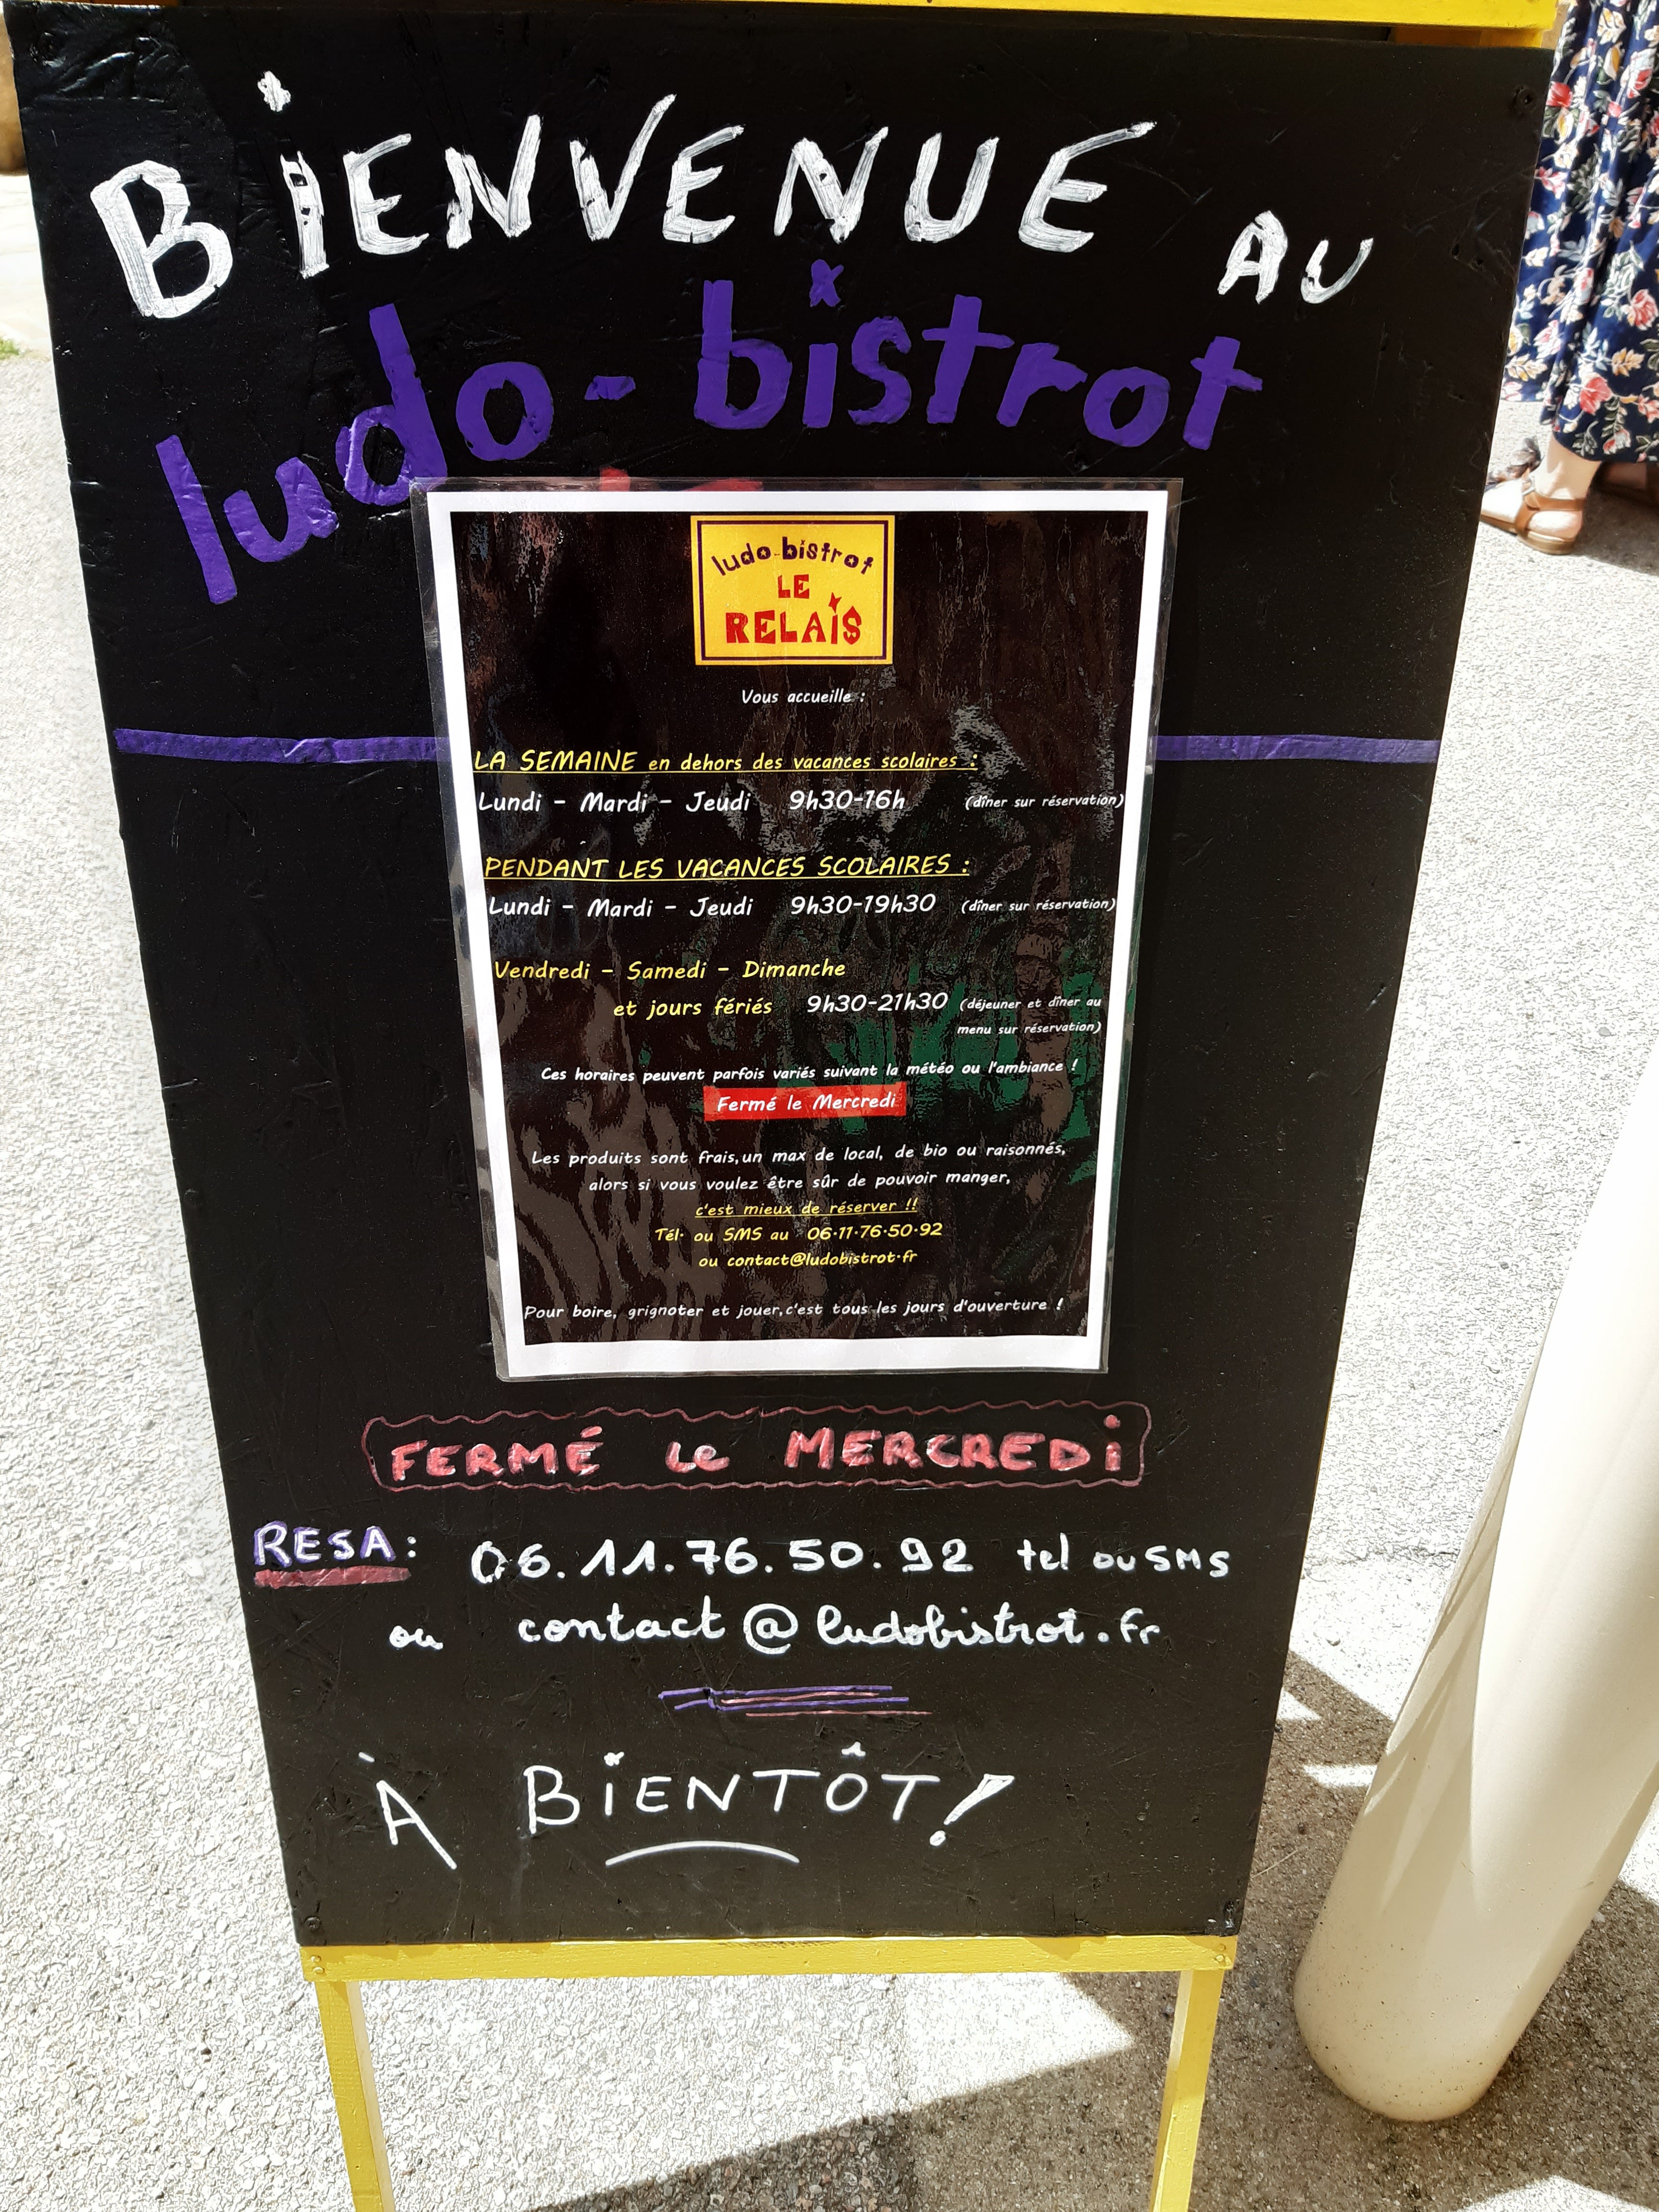 BiENVENUE AU
ludo-bistrot
ludo-bistrot
LE
RELAIS
Vous accueille :
LA SEMAINE en dehors des vacances scolaires :
Lundi - Mardi - Jeudi 9h30-16h (dîner sur réservation)
PENDANT LES VACANCES SCOLAIRES :
Lundi - Mardi - Jeudi 9h30-19h30 (dîner sur réservation)
Vendredi - Samedi - Dimanche
et jours fériés 9h30-21h30 (déjeuner et dîner au
menu sur réservation)
Ces horaires peuvent parfois variés suivant la météo ou l'ambiance !
Fermé le Mercredi
Les produits sont frais,un max de local, de bio ou raisonnés,
alors si vous voulez être sûr de pouvoir manger,
c'est mieux de réserver !!
Tél. ou SMS au 06.11.76.50.92
ou contact@ludobistrot.fr
Pour boire, grignoter et jouer,c'est tous les jours d'ouverture !
FERMÉ le MERCREDi
RESA: 06.11.76.50.92 tel ou SMS
ou contact@ludobistrot.fr
À BiENTÔT!